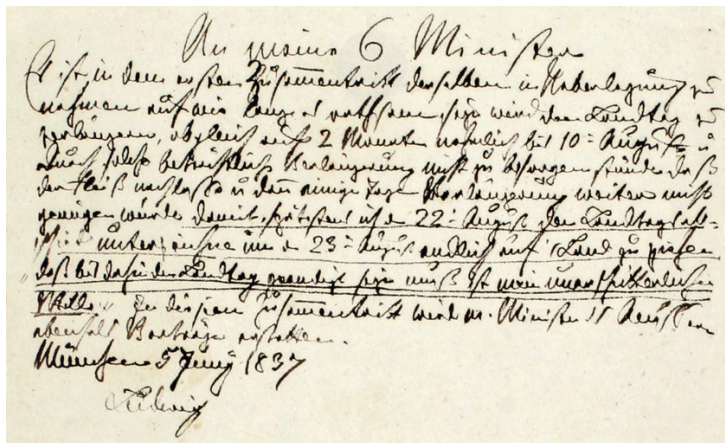 An meine 6 Minister
Es ist in dem ersten Zusammentritt derselben in Ueberlegung zu
nehmen auf wie lange es rathsam seyn wird den Landtag zu
verlängern, obgleich auf 2 Monate nehmlich bis 10 August u
durch solche beträchtliche Verlängerung nicht zu besorgen stünde daß
der Fleiß nachlasse u dann einige Tage Verlängerung weiter nicht
genügen würde damit spätestens ich den 22 August den Landtags
unterzeichne um den 23 August endlich auf's Land zu ziehen
daß bis dahin der Landtag geendigt seyn muß ist mein unerschütterlicher
Wille. In diesem Zusammentritt wird m. Minister d
ebenfalls Vorträge erstatten.
München 5 Juny 1837
Ludwig